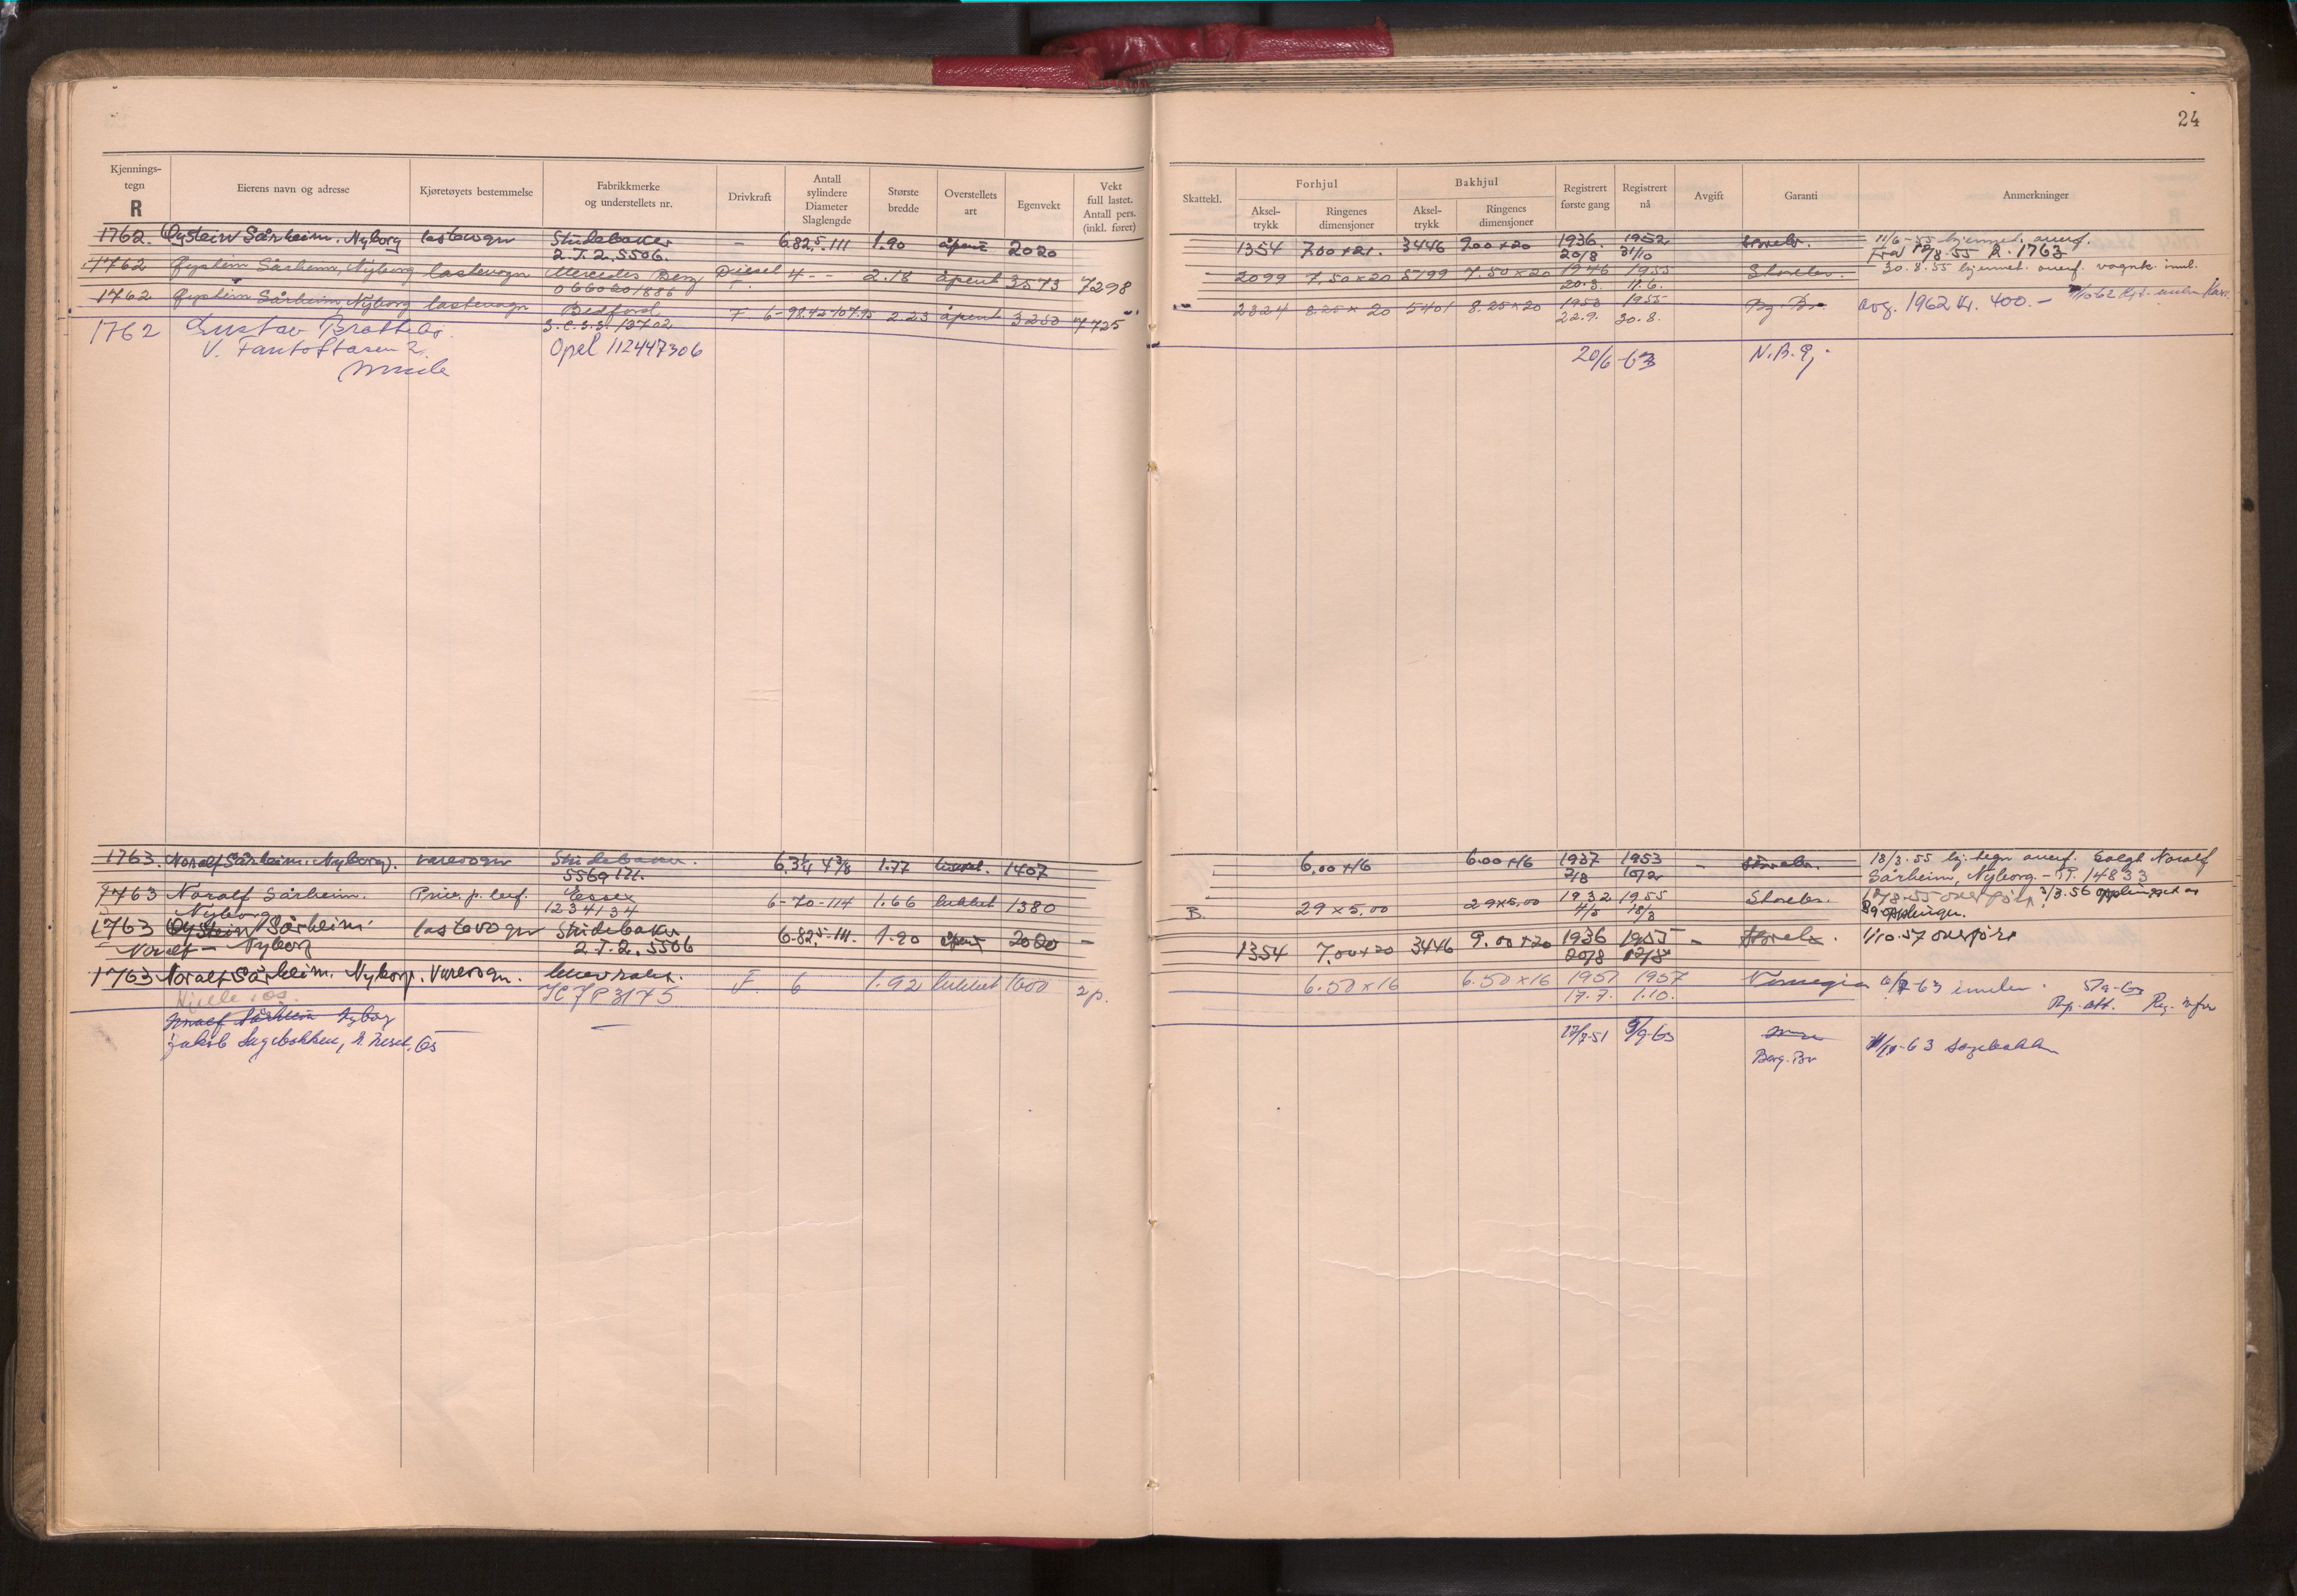 24
Kjennings-tegn R Eierens navn og adresse Kjøretøyets bestemmelse Fabrikkmerke og understellets nr. Drivkraft Antall sylindere Diameter Slaglengde Største bredde Overstellets art Egenvekt Vekt full lastet. Antall pers. (inkl. fører) Skattekl. Forhjul Aksel-trykk Ringenes dimensjoner Bakhjul Aksel-trykk Ringenes dimensjoner Registrert første gang Registrert nå Avgift Garanti Anmerkninger
1762. Øystein Sårheim. Nyborg lastevogn Studebaker - 6.82,5.111 1.90 åpent 2020 1354 7.00+21. 3446 9.00+20 1936. 1952 Storebr. 11/6-55 kjennet. overf.
2.T.2.5506. 20/8 31/10 Fra 12/8-55 R. 1763
1762 Øystein Sårheim, Nyborg lastevogn Mercedes Benz Diesel 4 - - 2.18 åpent 3573 7298 2099 7.50×20 5199 7.50×20 1946 1955 Storebr. 30.8.55 kjennet. overf. vognk. innl.
066020/886 20.3. 11.6.
1762 Øystein Sårheim, Nyborg lastevogn Bedford F 6-98.42-107.95 2.23 åpent 3250 7725 2324 8.25×20 5401 8.25×20 1953 1955 Bg. Br. avg. 1962 kr. 400.-
S.C.S.S. 13702 22.9. 30.8.
1762 Gustav Brattebø. Opel 112447306 20/6-63 N.B.G.
V. Fantoftåsen 2.
1763. Noralf Sårheim. Nyborg. varevogn Studebaker. 6.3¼ 4⅜ 1.77 lukket. 1407 6.00+16 6.00+16 1937 1953 Storebr. 18/3.55 kj. tegn overf. solgt Noralf
5569171. 2/8 10/2 Sårheim, Nyborg. - 14833
1763 Noralf Sårheim. Priv. p. bef. Essex 6-70-114 1.66 lukket 1380 B. 29×5.00 29×5.00 1932 1955 Storebr. 12/8-55 overført 3/3.56
Nyborg 1234134 4/5 18/3
1763 Øystein Sårheim lastevogn Studebaker 6-82,5-111. 1.90 åpent 2020 - 1354 7.00×20 3446 9.00+20 1936 1955 - Storebr. 1/10.57 overført
Noralf - Nyborg 2.T.2.5506 20/8 12/8
1763 Noralf Sårheim. Nyborg. Varevogn. Chevrolet. F. 6 1.92 lukket 1600 2 p. 6.50×16 6.50×16 1951 1957 Norregia
JCJP3175 17.7. 1.10.
Noralf Sårheim Nyborg 17/7-51 9/9-63
Jakob Sagebakken, Os Berg. Br 11/10-63 Sagebakken